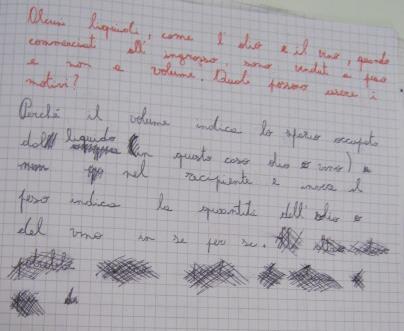 Alcuni liquidi, come l'olio e il vino, quando
commerciati all'ingrosso, sono venduti a peso
e non a volume. Quali possono essere i
motivi?
Perché il volume indica lo spazio occupato
dal liquido (in questo caso olio o vino)
nel recipiente e invece il
peso indica la quantità dell'olio o
del vino in se per se.